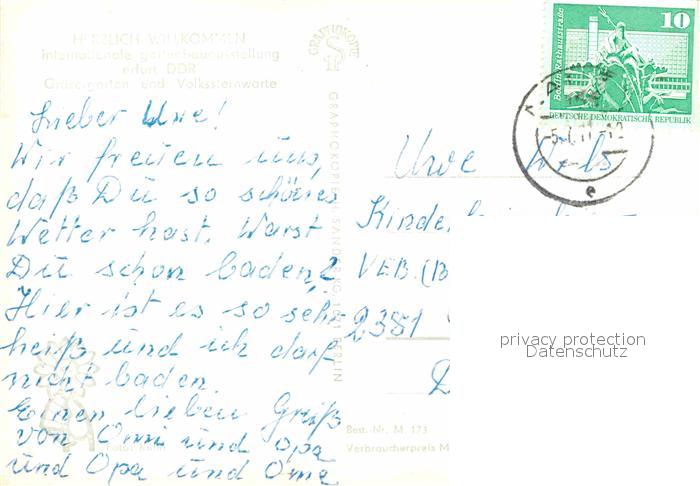 HERZLICH WILLKOMMEN
internationale gartenbauausstellung
erfurt DDR
Gräsergarten und Volkssternwarte
Lieber Uwe!
Wir freuen uns,
daß Du so schönes
Wetter hast. Warst
Du schon baden?
Hier ist es so sehr
heiß und ich darf
nicht baden.
Einen lieben Gruß
von Omi und Opa
und Opa und Oma
GRAPHOKOPIE
GRAPHOKOPIE H. SANDER KG, 1071 BERLIN
10
Berlin, Rathausstraße
DEUTSCHE DEMOKRATISCHE REPUBLIK
e
Uwe
Kinder
VEB. (B
2381
Best. Nr. M 173
Verbraucherpreis M
privacy protection
Datenschutz